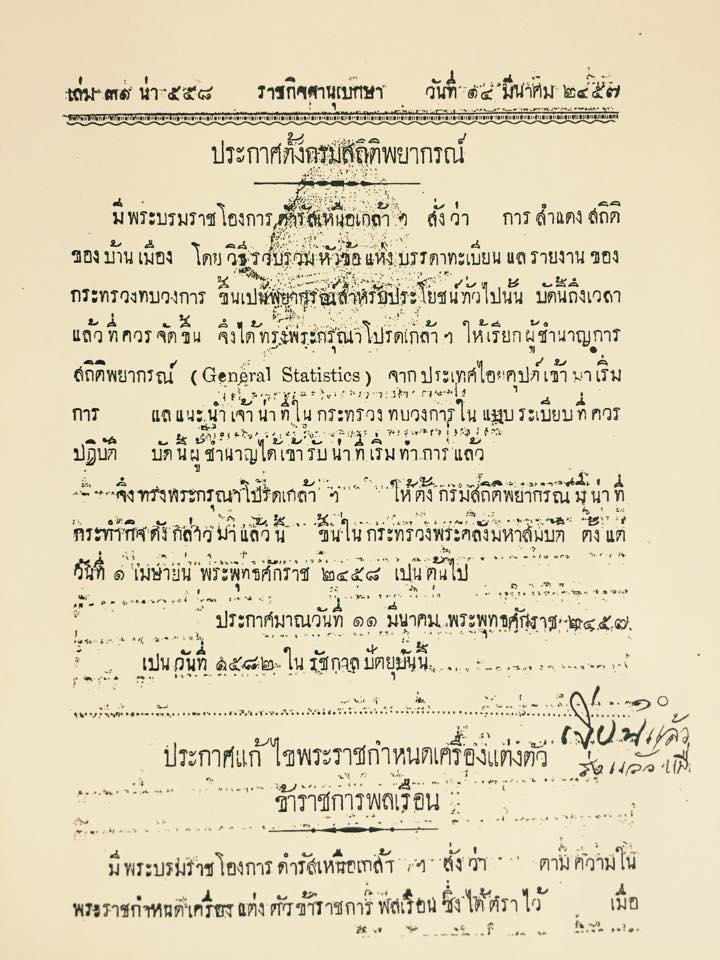 เล่ม ๓๑ น่า ๕๕๘ ราชกิจจานุเบกษา วันที่ ๑๔ มีนาคม ๒๔๕๗
ประกาศตั้งกรมสถิติพยากรณ์
มีพระบรมราชโองการ ดำรัสเหนือเกล้า ฯ สั่งว่า การสำแดงสถิติ
ของบ้านเมือง โดยวิธีรวบรวมหัวข้อแห่งบรรดาทะเบียนแลรายงานของ
กระทรวงทบวงการ ขึ้นเปนพยากรณ์สำหรับประโยชน์ทั่วไปนั้น บัดนี้ถึงเวลา
แล้วที่ควรจัดขึ้น จึงได้ทรงพระกรุณาโปรดเกล้า ฯ ให้เรียกผู้ชำนาญการ
สถิติพยากรณ์ (General Statistics) จากประเทศไอยคุปต์เข้ามาเริ่ม
การ แลแนะนำเจ้าน่าที่ในกระทรวงทบวงการในแบบระเบียบที่ควร
ปฏิบัติ บัดนี้ผู้ชำนาญได้เข้ารับน่าที่เริ่มทำการแล้ว
จึงทรงพระกรุณาโปรดเกล้า ฯ ให้ตั้งกรมสถิติพยากรณ์มีน่าที่
กระทำกิจดังกล่าวมาแล้วนี้ ขึ้นในกระทรวงพระคลังมหาสมบัติ ตั้งแต่
วันที่ ๑ เมษายน พระพุทธศักราช ๒๔๕๘ เปนต้นไป
ประกาศมาณวันที่ ๑๑ มีนาคม พระพุทธศักราช ๒๔๕๗
เปนวันที่ ๑๕๘๒ ในรัชกาลปัตยุบันนี้
๑๐
แล้ว
ประกาศแก้ไขพระราชกำหนดเครื่องแต่งตัว
ข้าราชการพลเรือน
มีพระบรมราชโองการดำรัสเหนือเกล้า ฯ สั่งว่า ตามความใน
พระราชกำหนดเครื่องแต่งตัวข้าราชการพลเรือนซึ่งได้ตราไว้ เมื่อ